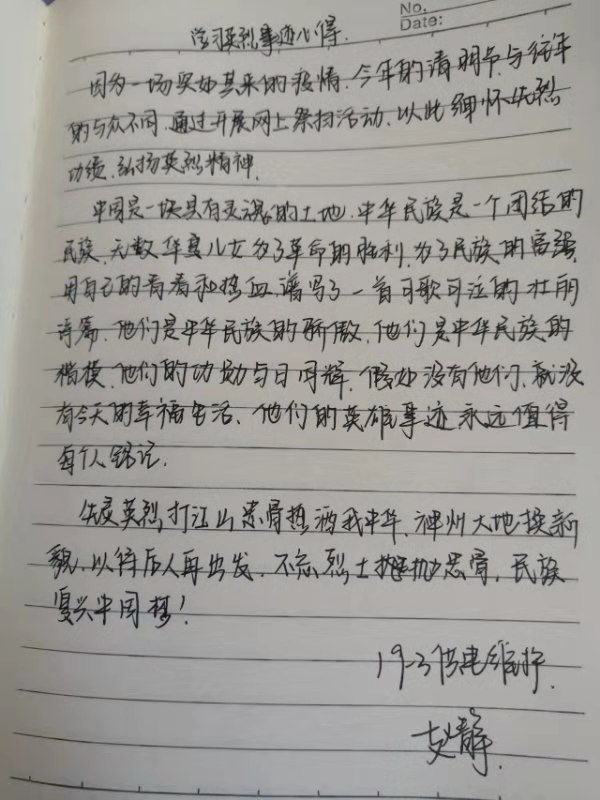 No.
Date:
学习英烈事迹心得.
因为一场突如其来的疫情.今年的清明节与往年
的与众不同,通过开展网上祭扫活动.以此缅怀先烈
功绩、弘扬英烈精神.
中国是一块具有灵魂的土地.中华民族是一个团结的
民族、无数华夏儿女为了革命的胜利.为了民族的富强
用自己的青春和热血.谱写了一首可歌可泣的壮丽
诗篇.他们是中华民族的骄傲.他们是中华民族的
楷模.他们的功勋与日同辉.假如没有他们、就没
有今天的幸福生活、他们的英雄事迹永远值得
每个人铭记.
先辈英烈打江山忠骨热洒我中华.神州大地换新
貌.以待后人再出发.不忘烈士抛忠骨,民族
复兴中国梦!
19-3供电维护.
赵静.